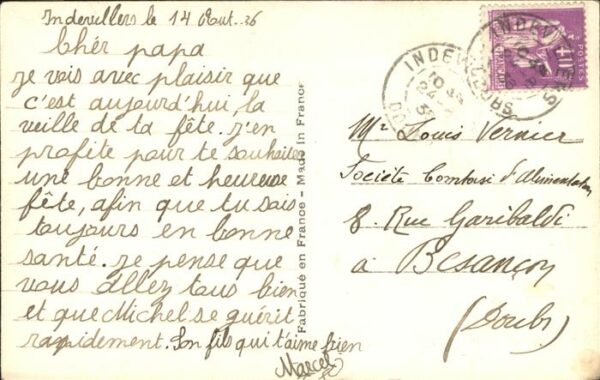 Indevillers le 14 Aout 36
Chér papa
Je vois avec plaisir que
c'est aujourd'hui, la
veille de ta fête. J'en
profite pour te souhaiter
une bonne et heureuse
fête, afin que tu sois
toujours en bonne
santé. Je pense que
vous allez tous bien
et que Michel se guérit
rapidement. Ton fils qui t'aime bien
Marcel
Fabriqué en France - Made in France
INDEVILLERS
DOUBS
INDEVILLERS
POSTES
Mr Louis Vernier
Société Comtoise d'Alimentation
8. Rue Garibaldi
à Besançon
(Doubs)